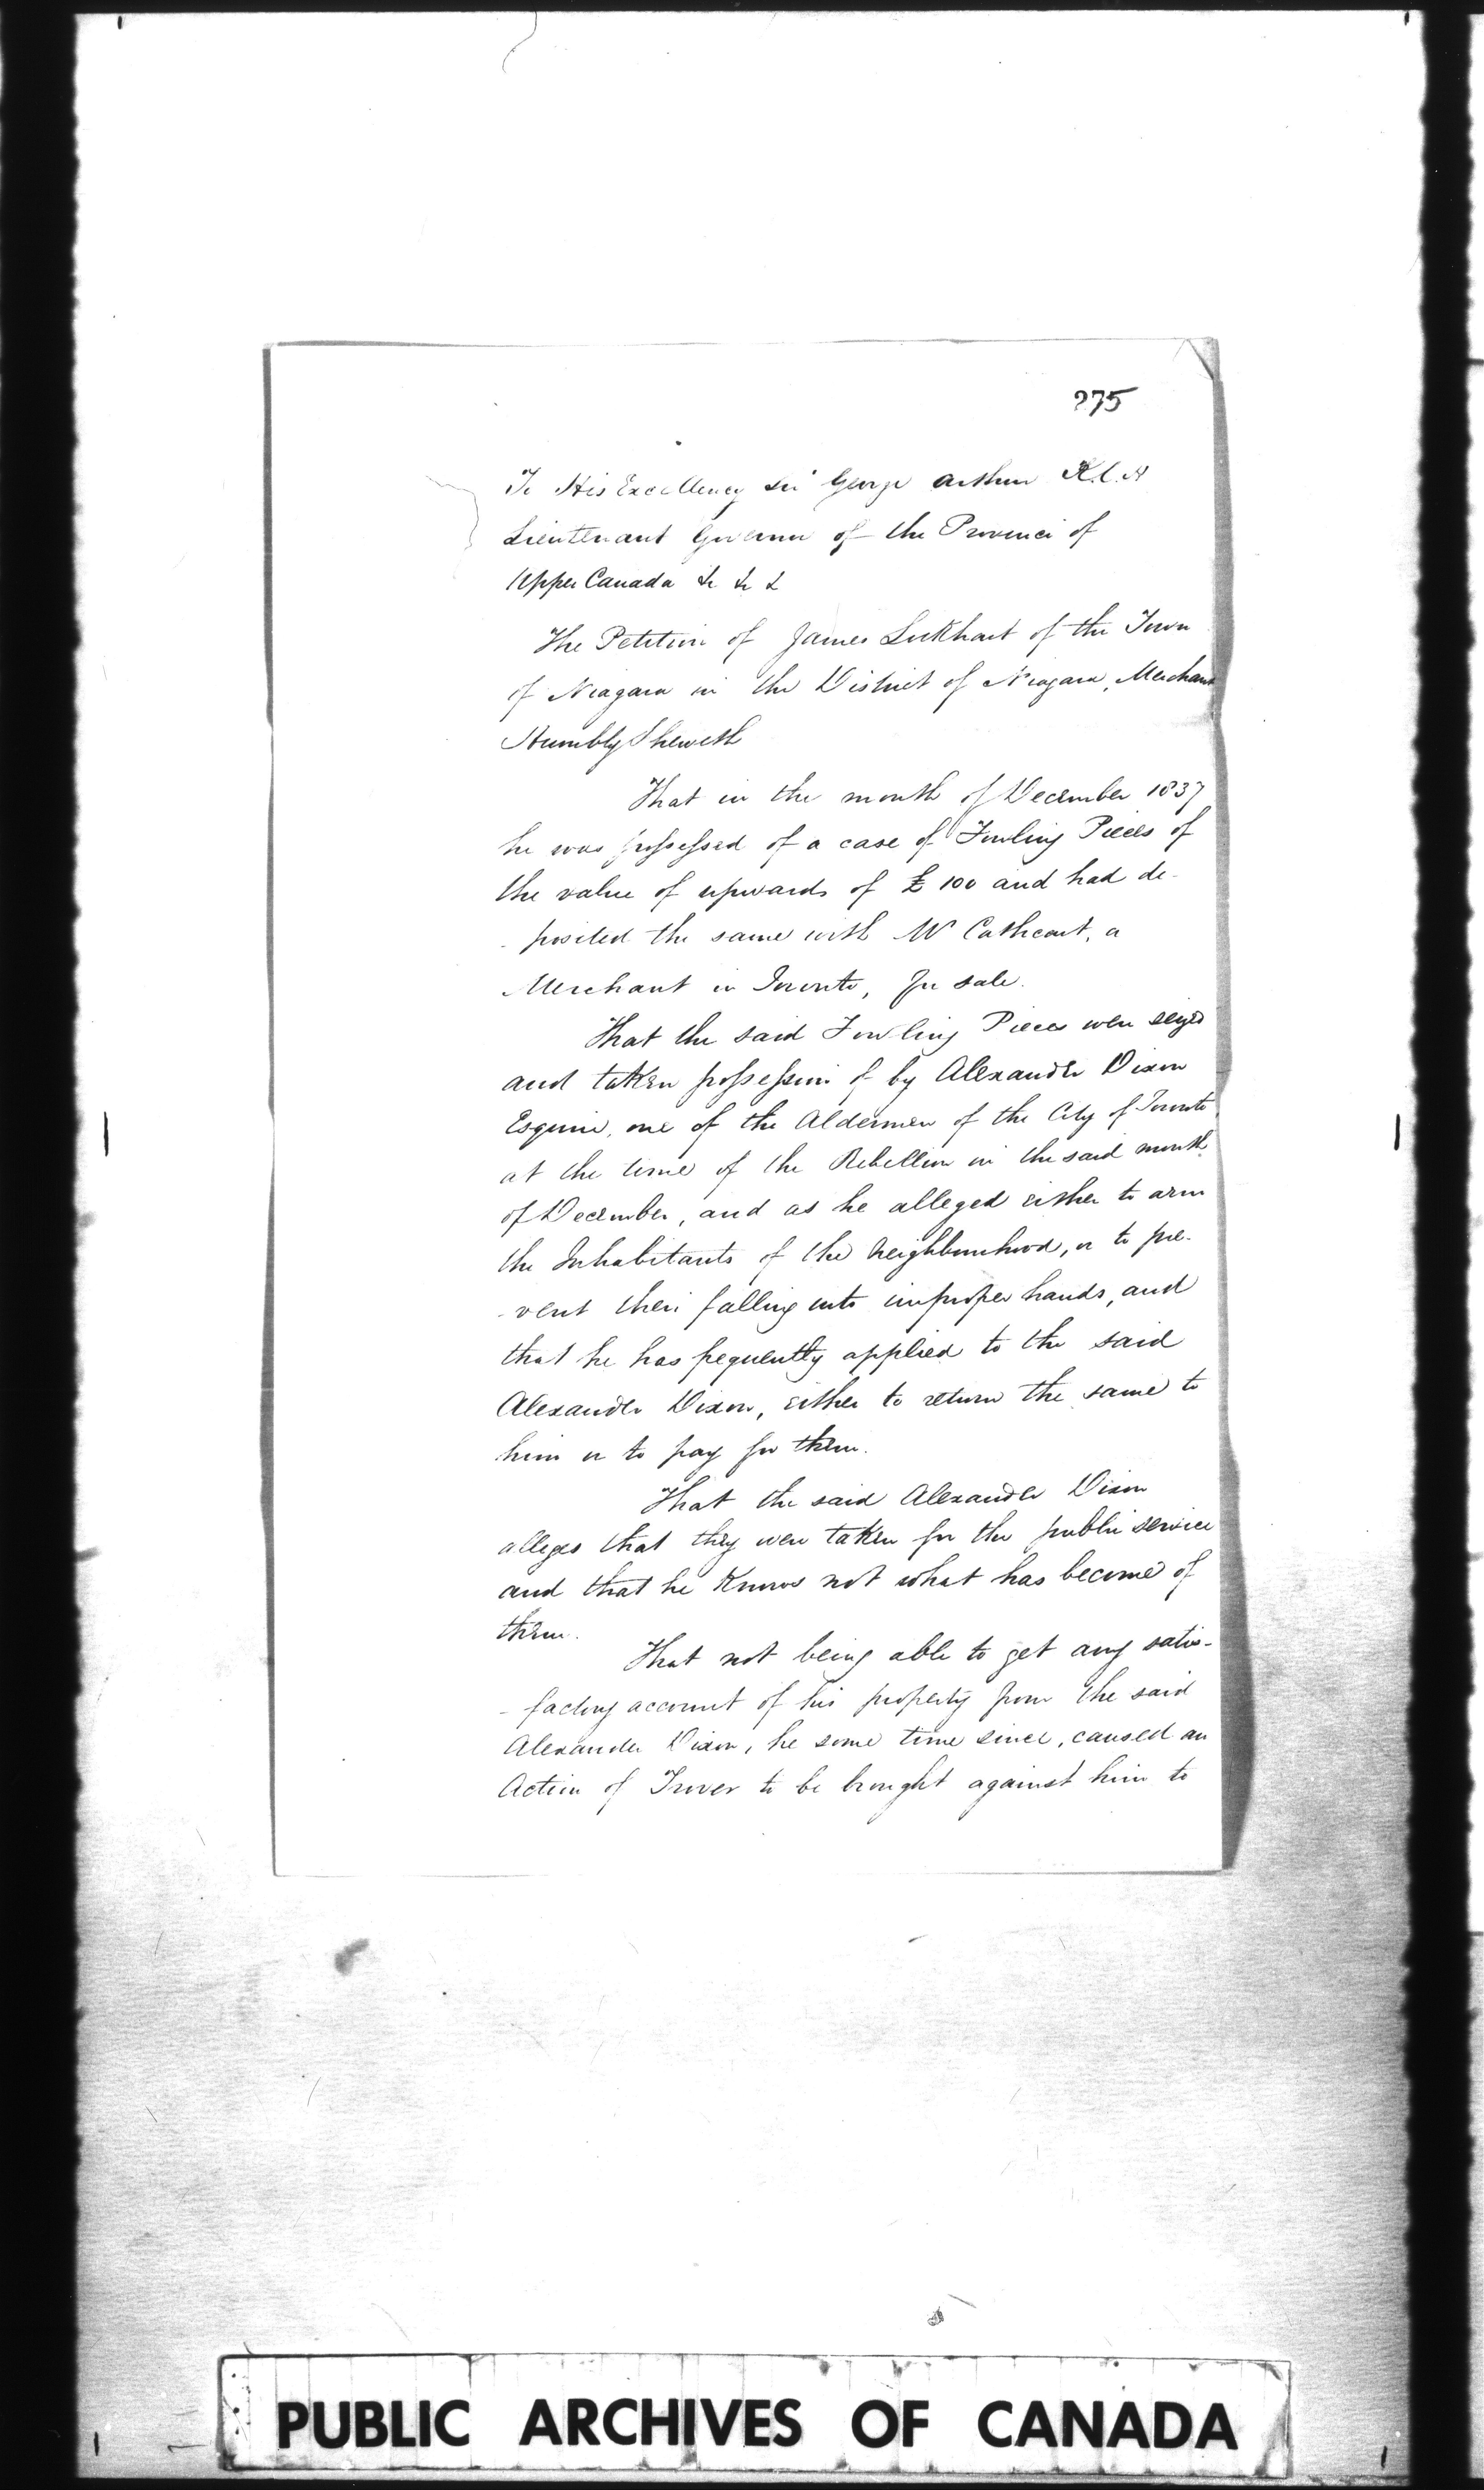 275
To His Excellency Sir George Arthur K.C.H
Lieutenant Governor of the Province of
Upper Canada &c &c &c
The Petition of James Lockhart of the Town
of Niagara in the District of Niagara, Merchant
Humbly Sheweth
That in the month of December 1837
he was possessed of a case of Fowling Pieces of
the value of upwards of £100 and had de-
- posited the same with Mr Cathcart, a
Merchant in Toronto, for sale.
That the said Fowling Pieces were seized
and taken possession of by Alexander Dixon
Esquire, one of the Aldermen of the City of Toronto
at the time of the Rebellion in the said month
of December, and as he alleged either to arm
the Inhabitants of the Neighbourhood, or to pre-
- vent their falling into improper hands, and
that he has frequently applied to the said
Alexander Dixon, either to return the same to
him or to pay for them.
That the said Alexander Dixon
alleges that they were taken for the public service
and that he knows not what has become of
them.
That not being able to get any satis-
- factory account of his property from the said
Alexander Dixon, he some time since, caused an
Action of Trover to be brought against him to
PUBLIC ARCHIVES OF CANADA